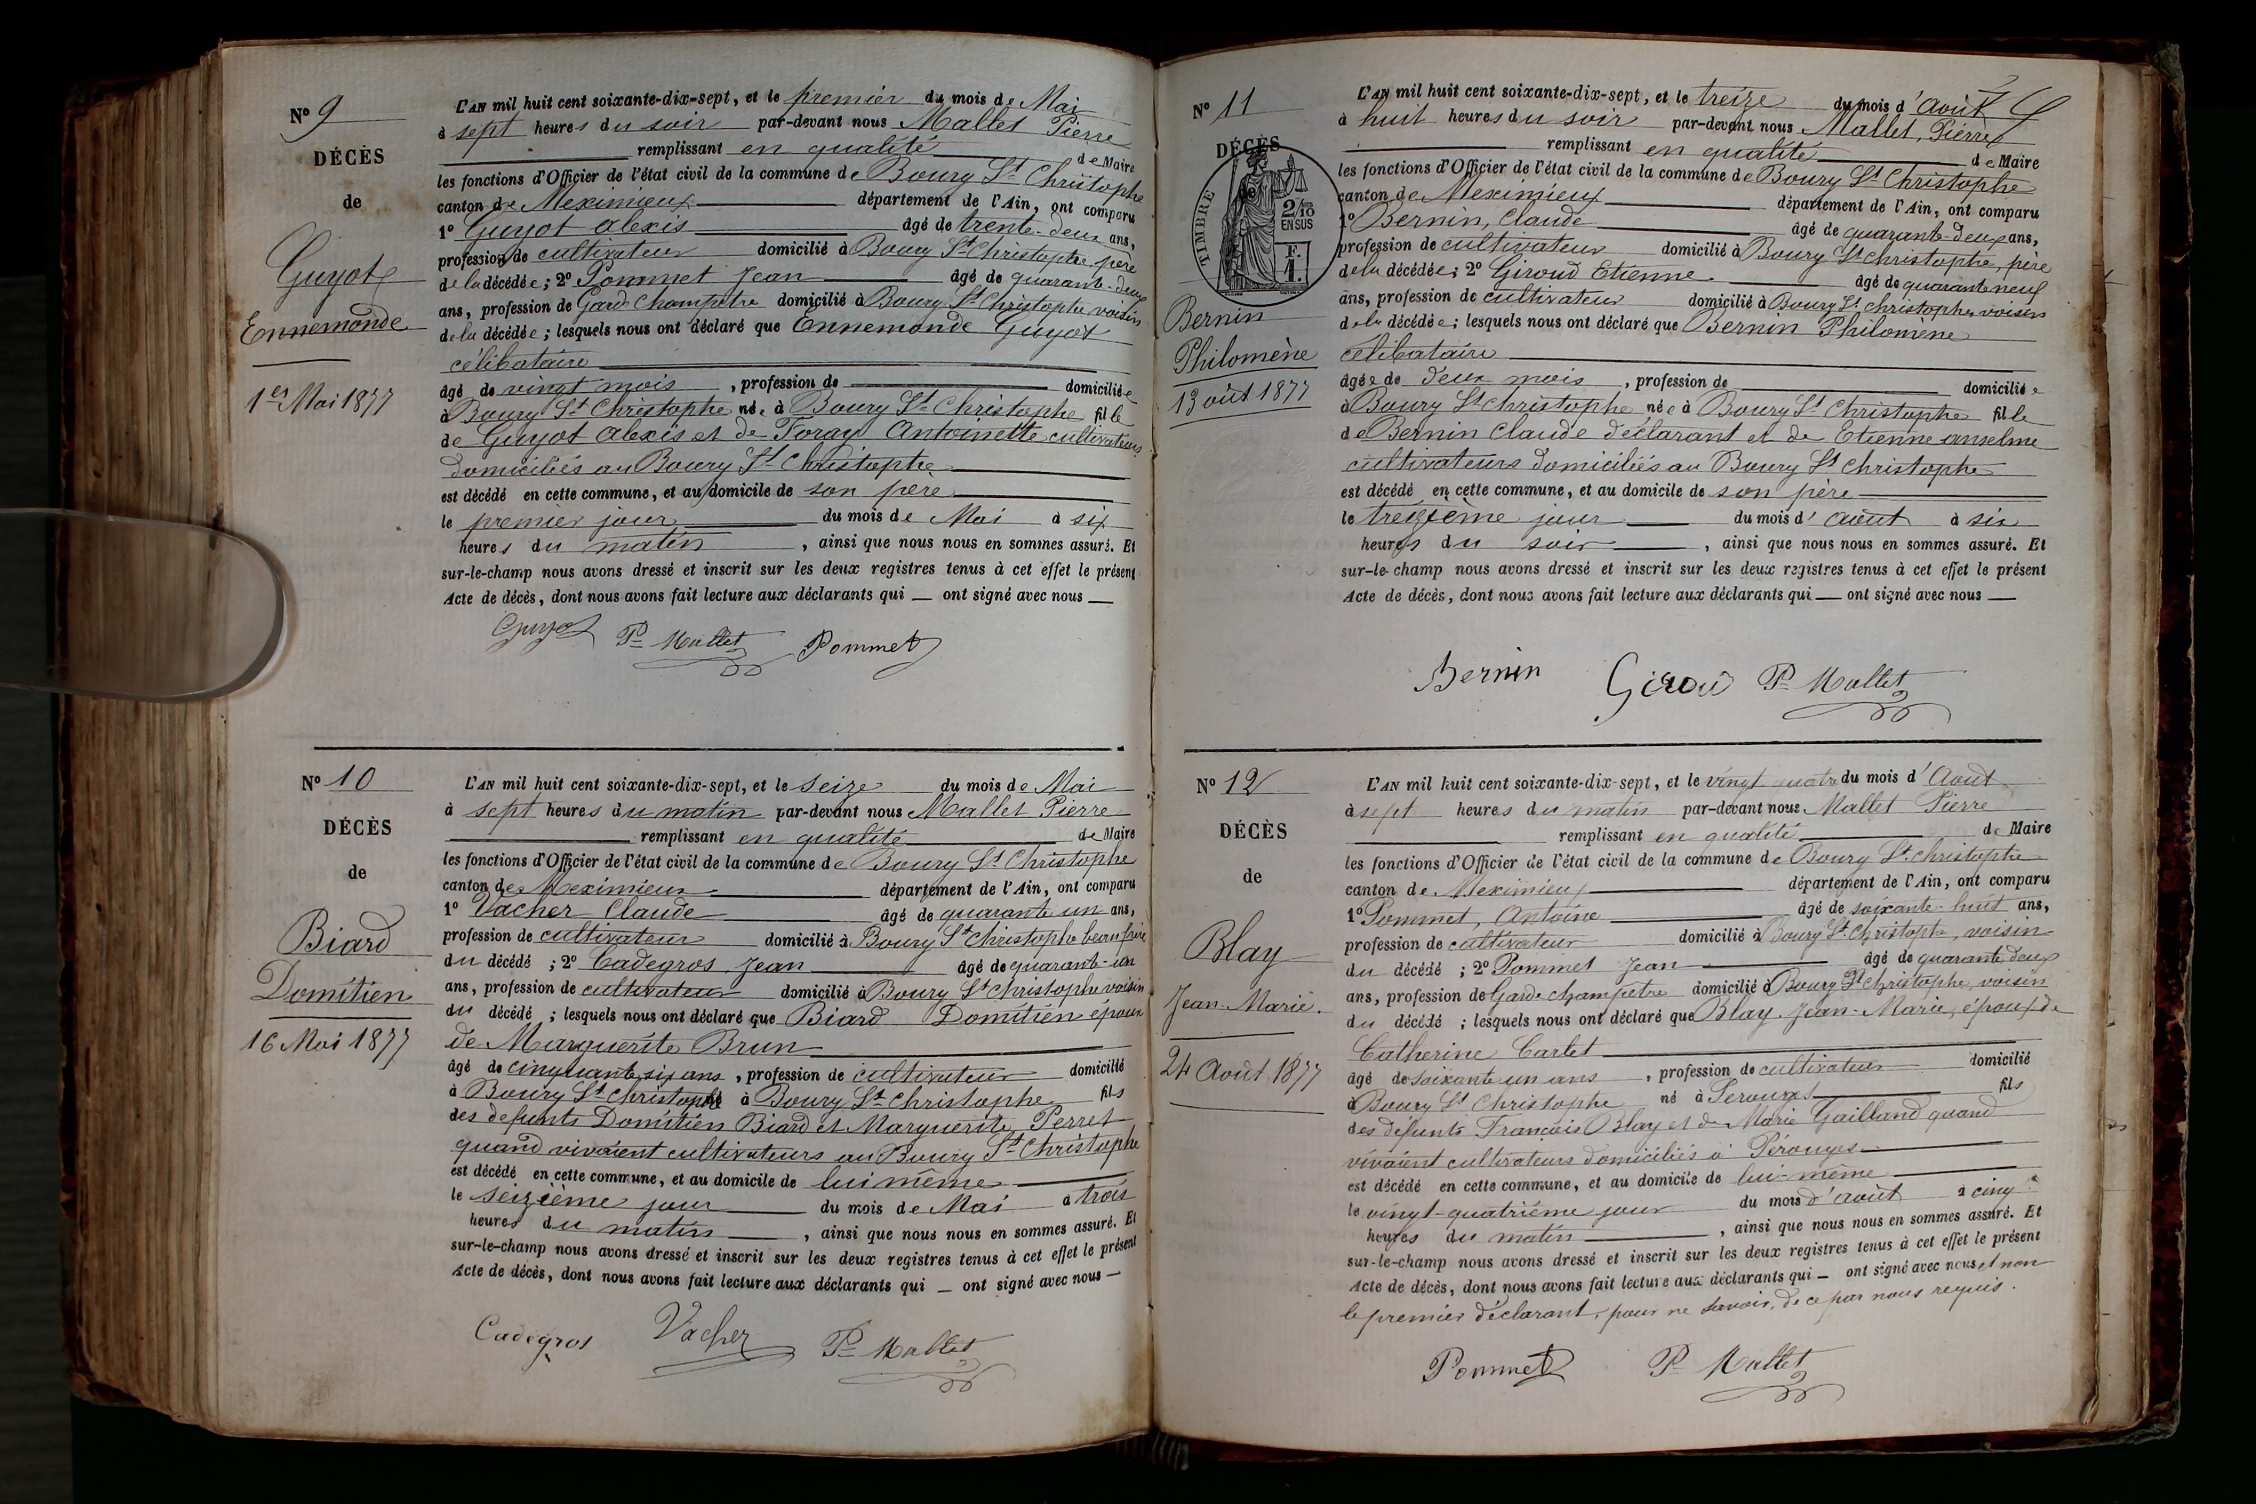 N° 9
DÉCÈS
de
Guyot
Ennemonde
1er Mai 1877
L'AN mil huit cent soixante-dix-sept, et le premier du mois de Mai
à sept heures du soir par-devant nous Mallet Pierre
remplissant en qualité de Maire
les fonctions d'Officier de l'état civil de la commune de Bourg St Christophe
canton de Meximieux département de l'Ain, ont comparu
1° Guyot Alexis âgé de trente-deux ans,
profession de cultivateur domicilié à Bourg St Christophe père
de la décédée ; 2° Pommet Jean âgé de quarante-deux
ans, profession de Garde champêtre domicilié à Bourg St Christophe voisin
de la décédée ; lesquels nous ont déclaré que Ennemonde Guyot
célibataire
âgé de vingt mois , profession de domiciliée
à Bourg St Christophe née à Bourg St Christophe fille
de Guyot Alexis et de Foray Antoinette cultivateurs
domiciliés au Bourg St Christophe
est décédé en cette commune, et au domicile de son père
le premier jour du mois de Mai à six
heures du matin , ainsi que nous nous en sommes assuré. Et
sur-le-champ nous avons dressé et inscrit sur les deux registres tenus à cet effet le présent
Acte de décès, dont nous avons fait lecture aux déclarants qui — ont signé avec nous —
Guyot Pre Mallet Pommet
N° 10
DÉCÈS
de
Biard
Domitien
16 Mai 1877
L'AN mil huit cent soixante-dix-sept, et le seize du mois de Mai
à sept heures du matin par-devant nous Mallet Pierre
remplissant en qualité de Maire
les fonctions d'Officier de l'état civil de la commune de Bourg St Christophe
canton de Meximieux département de l'Ain, ont comparu
1° Vacher Claude âgé de quarante un ans,
profession de cultivateur domicilié à Bourg St Christophe beau frère
du décédé ; 2° Cadegros Jean âgé de quarante-un
ans, profession de cultivateur domicilié à Bourg St Christophe voisin
du décédé ; lesquels nous ont déclaré que Biard Domitien époux
de Marguerite Brun
âgé de cinquante six ans , profession de cultivateur domicilié
à Bourg St Christophe né à Bourg St Christophe fils
des defunts Domitien Biard et Marguerite Perret
quand vivaient cultivateurs au Bourg St Christophe
est décédé en cette commune, et au domicile de lui même
le seizième jour du mois de Mai à trois
heures du matin , ainsi que nous nous en sommes assuré. Et
sur-le-champ nous avons dressé et inscrit sur les deux registres tenus à cet effet le présent
Acte de décès, dont nous avons fait lecture aux déclarants qui — ont signé avec nous —
Cadegros Vacher Pre Mallet
N° 11
DÉCÈS
de
TIMBRE
2/10
EN SUS
F.
1.
Bernin
Philomène
13 août 1877
L'AN mil huit cent soixante-dix-sept, et le treize du mois d'août
à huit heures du soir par-devant nous Mallet, Pierre
remplissant en qualité de Maire
les fonctions d'Officier de l'état civil de la commune de Bourg St Christophe
canton de Meximieux département de l'Ain, ont comparu
1° Bernin, Claude âgé de quarante-deux ans,
profession de cultivateur domicilié à Bourg St Christophe, père
de la décédée ; 2° Giroud Etienne âgé de quarante neuf
ans, profession de cultivateur domicilié à Bourg St Christophe, voisin
de la décédée ; lesquels nous ont déclaré que Bernin Philomène
célibataire
âgée de deux mois , profession de domiciliée
à Bourg St Christophe née à Bourg St Christophe fille
de Bernin Claude déclarant et de Etienne anselme
cultivateurs domiciliés au Bourg St Christophe
est décédé en cette commune, et au domicile de son père
le treizième jour du mois d'août à six
heures du soir , ainsi que nous nous en sommes assuré. Et
sur-le-champ nous avons dressé et inscrit sur les deux registres tenus à cet effet le présent
Acte de décès, dont nous avons fait lecture aux déclarants qui — ont signé avec nous —
Bernin Girou Pre Mallet
N° 12
DÉCÈS
de
Blay
Jean-Marie.
24 Août 1877
L'AN mil huit cent soixante-dix-sept, et le vingt quatre du mois d'Août
à sept heures du matin par-devant nous Mallet Pierre
remplissant en qualité de Maire
les fonctions d'Officier de l'état civil de la commune de Bourg St Christophe
canton de Meximieux département de l'Ain, ont comparu
1° Pommet, Antoine âgé de soixante-huit ans,
profession de cultivateur domicilié à Bourg St Christophe, voisin
du décédé ; 2° Pommet Jean âgé de quarante deux
ans, profession de Garde champêtre domicilié à Bourg St Christophe, voisin
du décédé ; lesquels nous ont déclaré que Blay Jean-Marie, époux de
Catherine Carlet
âgé de soixante un ans , profession de cultivateur domicilié
à Bourg St Christophe né à Perouges fils
des défunts François Blay et de Marie Gailland quand
vivaient cultivateurs domiciliés à Pérouges
est décédé en cette commune, et au domicile de lui-même
le vingt-quatrième jour du mois d'août à cinq
heures du matin , ainsi que nous nous en sommes assuré. Et
sur-le-champ nous avons dressé et inscrit sur les deux registres tenus à cet effet le présent
Acte de décès, dont nous avons fait lecture aux déclarants qui — ont signé avec nous et non
le premier déclarant, pour ne savoir, de ce par nous requis.
Pommet Pre Mallet